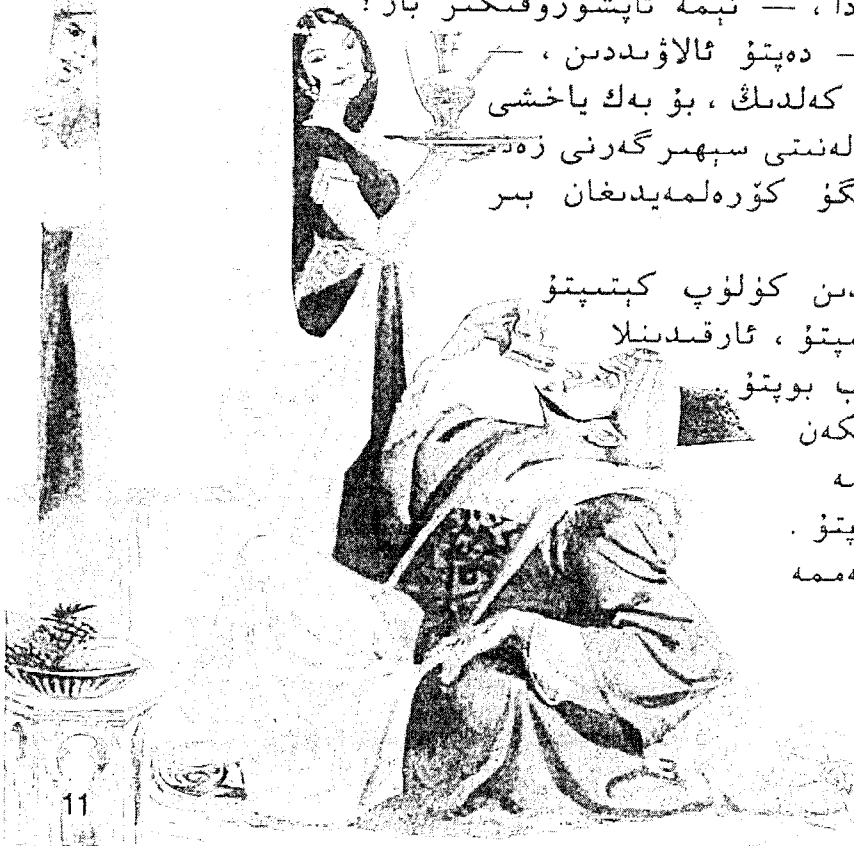 دا ، — نېمە تاپشۇرۇقىڭىز بار ؟
— دەپتۇ ئالاۋىددىن ، —
كەلدىڭ ، بۇ بەك ياخشى
لەنىتى سېھىرگەرنى زەن
گۈ كۆرەلمەيدىغان بىر
دىن كۈلۈپ كېتىپتۇ
ىپتۇ ، ئارقىدىنلا
پ بوپتۇ .
كەن
ە
پتۇ .
ەممە
11